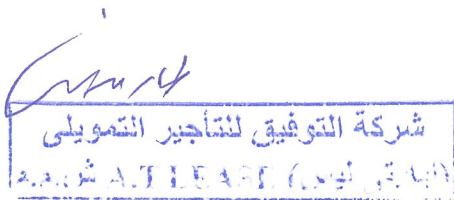 شركة التوفيق للتأجير التمويلى
(ايه تى ليس) A.T LEASE ش.م.م